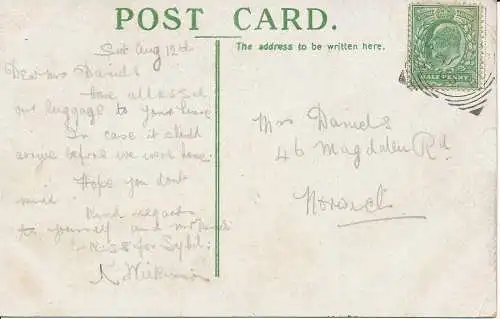 POST CARD.
The address to be written here.
HALFPENNY
Sat Aug 12th
Dear Mrs Daniels
have addressed
our luggage to your house
In case it should
arrive before we were home.
Hope you dont
mind
Kind regards
to yourself and Mr
Kiss for Sybil.
Mrs Daniels
46 Magdalen Rd
Norwich